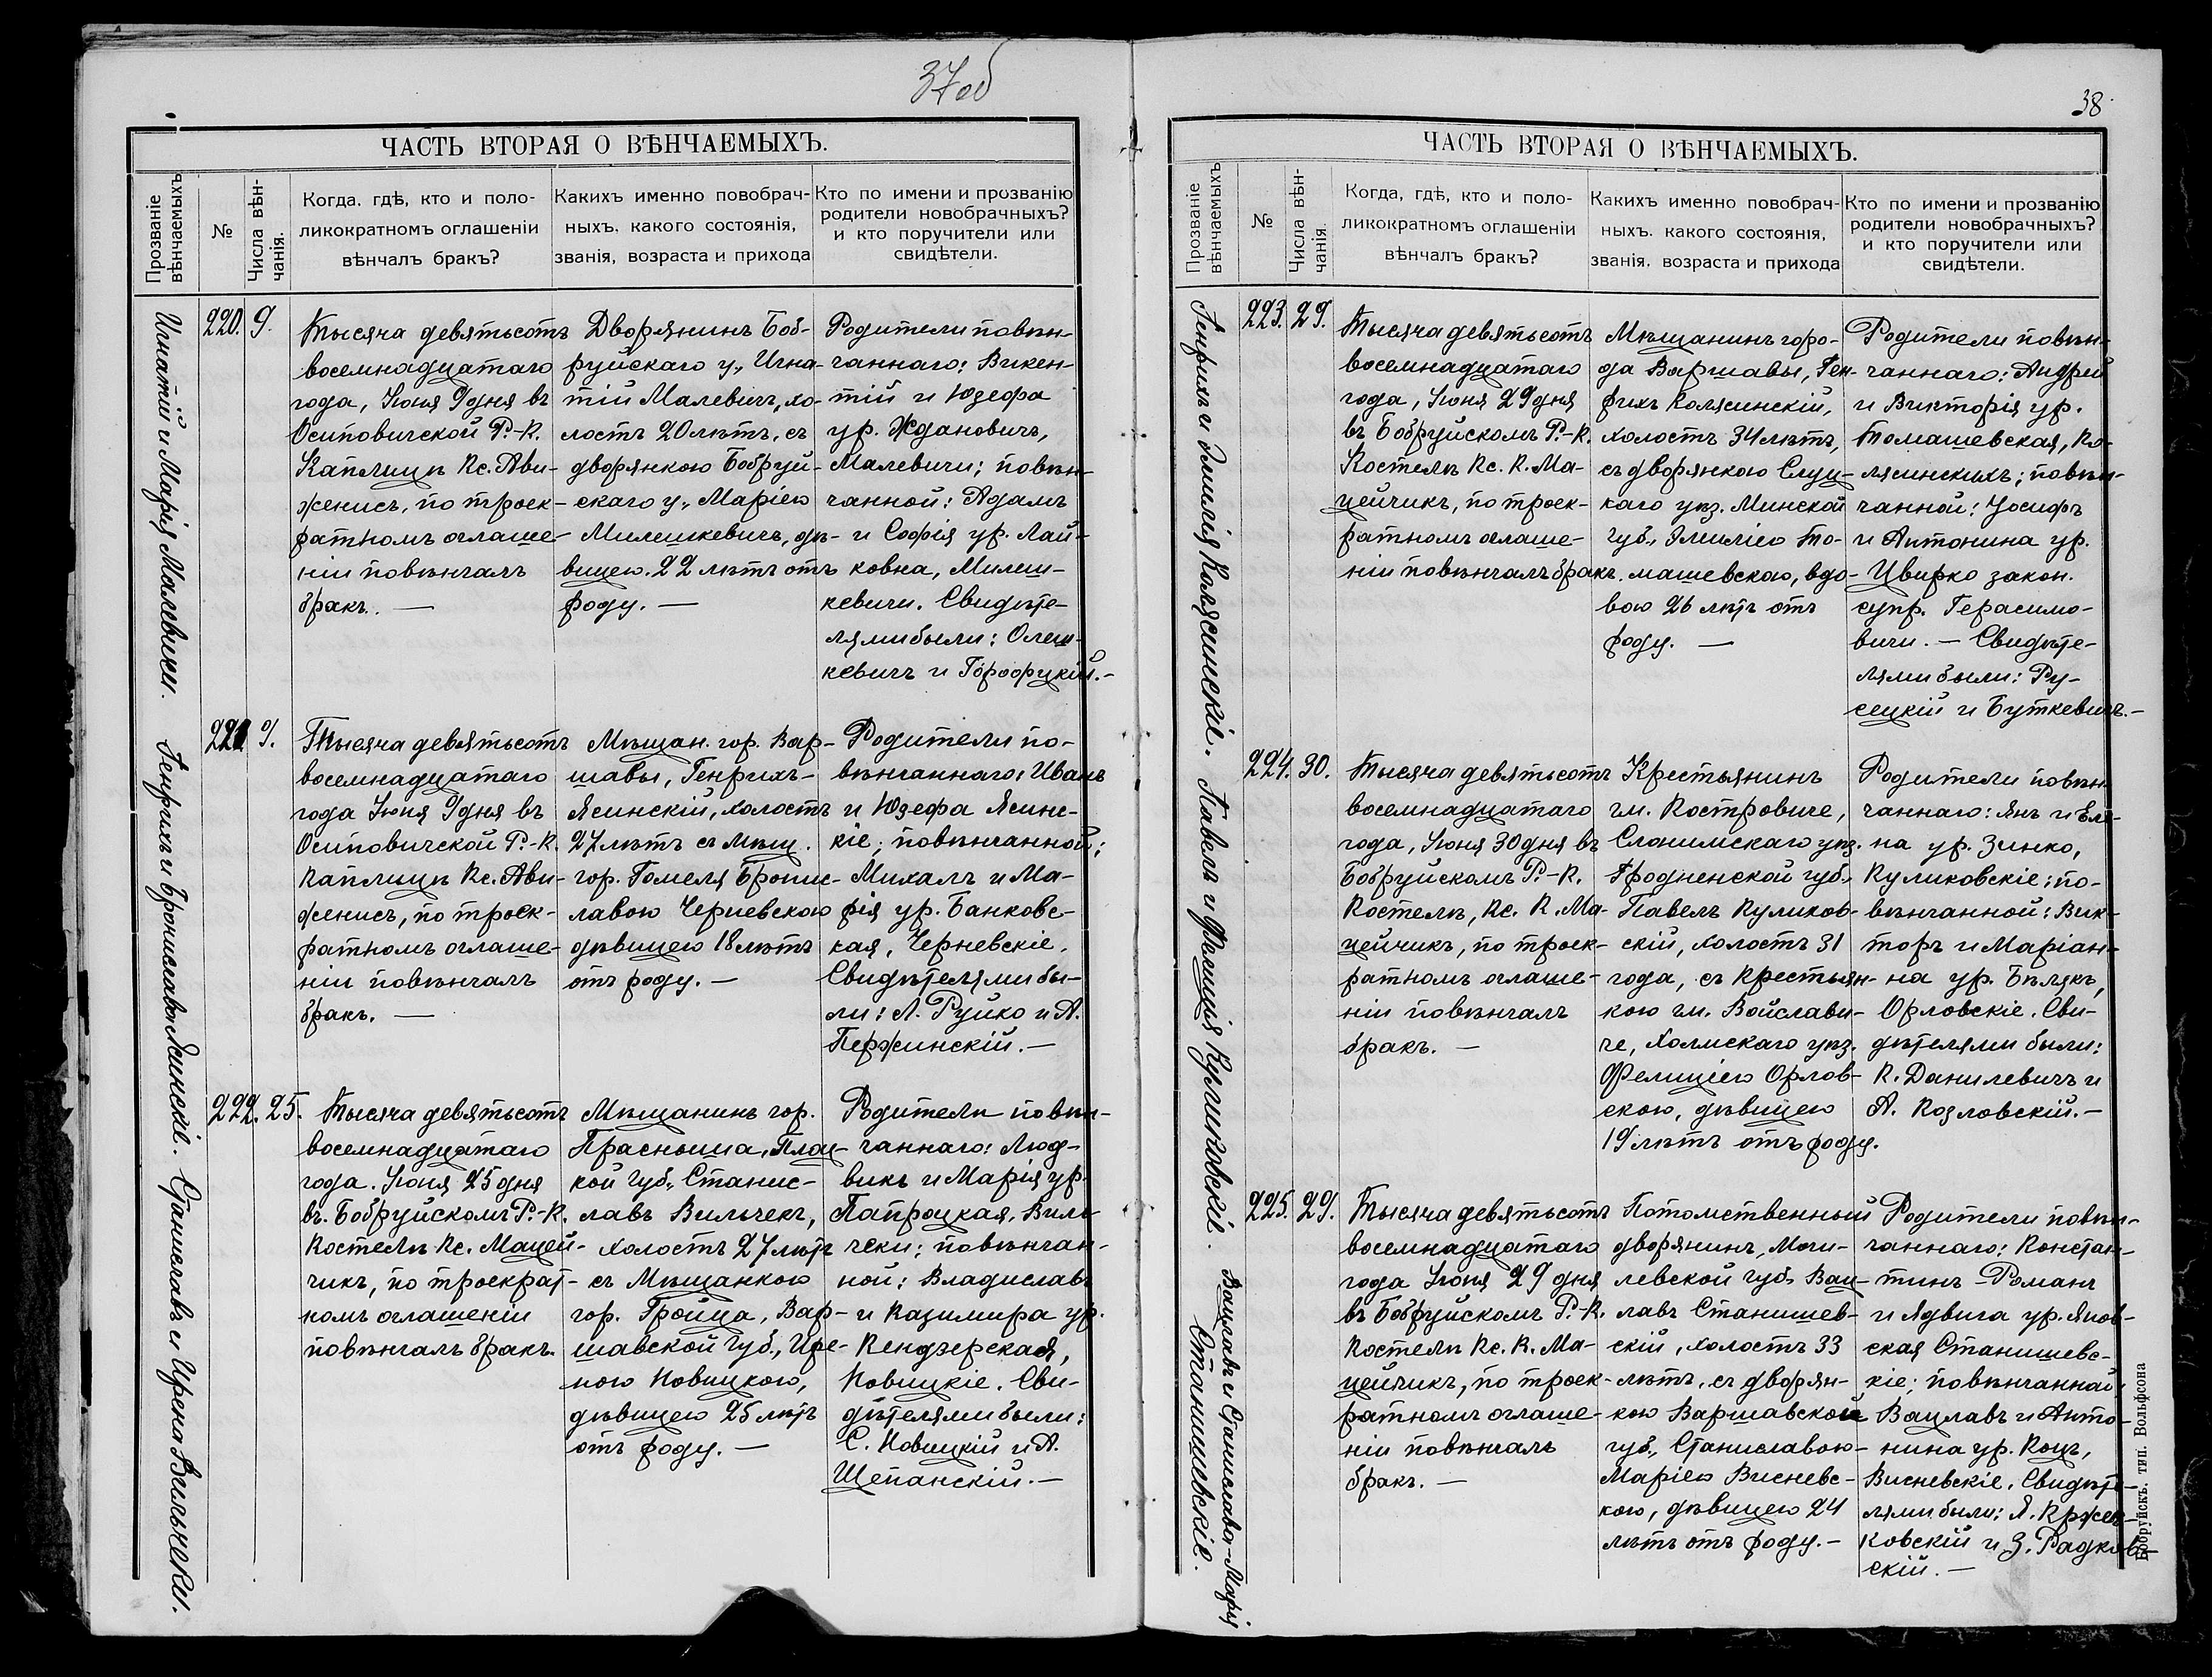 37об
ЧАСТЬ ВТОРАЯ О ВѢНЧАЕМЫХЪ.
Прозваніе
вѣнчаемыхъ
№
Числа вѣн-
чанія.
Когда. гдѣ, кто и поло-
ликократномъ оглашеніи
вѣнчалъ бракъ?
Какихъ именно новобрач-
ныхъ. какого состоянія,
званія, возраста и прихода
Кто по имени и прозванію
родители новобрачныхъ?
и кто поручители или
свидѣтели.
Игнатій и Марія Малевичи.
220.
9.
Тысяча девятьсотъ
восемнадцатаго
года, Іюня 9 дня въ
Осиповичской Р.-К.
Каплицѣ Кс. Ави-
женисъ, по троек-
ратномъ оглаше-
ніи повѣнчалъ
бракъ. —
Дворянинъ Боб-
руйскаго у., Игна-
тій Малевичъ, хо-
лостъ 20 лѣтъ, съ
дворянкою Бобруй-
скаго у., Маріею
Милешкевичъ, дѣ-
вицею. 22 лѣтъ отъ
роду. —
Родители повѣн-
чаннаго: Викен-
тій и Юзефа
ур. Ждановичъ,
Малевичи; повѣн-
чанной: Адамъ
и Софія ур. Лай-
ковна, Милеш-
кевичи. Свидѣте-
лями были: Олеш-
кевичъ и
Генрихъ и Бронислава Ясинскіе.
221.
9.
Тысяча девятьсотъ
восемнадцатаго
года Іюня 9 дня въ
Осиповичской Р.-К.
Каплицѣ Кс. Ави-
женисъ, по троек-
ратномъ оглаше-
ніи повѣнчалъ
бракъ. —
Мѣщан. гор. Вар-
шавы, Генрихъ-
Ясинскій, холостъ
27 лѣтъ съ мѣщ.
гор. Гомеля Бронис-
лавою Черневскою
дѣвицею 18 лѣтъ
отъ роду. —
Родители по-
вѣнчаннаго: Иванъ
и Юзефа Ясинс-
кіе; повѣнчанной:
Михалъ и Ма-
рія ур. Банковс-
кая, Черневскіе.
Свидѣтелями бы-
ли: Л. Руйко и А.
Пержинскій. —
Станиславъ и Ирена Вильчеки.
222.
25.
Тысяча девятьсотъ
восемнадцатаго
года. Іюня 25 дня
въ. Бобруйскомъ Р.-К.
Костелѣ Кс. Мацей-
чикъ, по троекрат-
номъ оглашеніи
повѣнчалъ бракъ.
Мѣщанинъ гор.
Прасныша, Плоц-
кой губ., Станис-
лавъ Вильчекъ,
холостъ 27 лѣтъ
съ Мѣщанкою
гор. Гройца, Вар-
шавской губ., Ире-
ною Новицкою,
дѣвицею 25 лѣтъ
отъ роду. —
Родители повѣн-
чаннаго: Люд-
викъ и Марія ур.
Папроцкая, Виль-
чеки; повѣнчан-
ной: Владиславъ
и Казимира ур.
Кендзерская,
Новицкіе. Сви-
дѣтелями были:
С. Новицкій и А.
Щепанскій. —
38
ЧАСТЬ ВТОРАЯ О ВѢНЧАЕМЫХЪ.
Прозваніе
вѣнчаемыхъ
№
Числа вѣн-
чанія.
Когда, гдѣ, кто и поло-
ликократномъ оглашеніи
вѣнчалъ бракъ?
Какихъ именно новобрач-
ныхъ. какого состоянія,
званія. возраста и прихода
Кто по имени и прозванію
родители новобрачныхъ?
и кто поручители или
свидѣтели.
Генрихъ и Эмилія Колясинскіе.
223.
29.
Тысяча девятьсотъ
восемнадцатаго
года, Іюня 29 дня
въ Бобруйскомъ Р.-К.
Костелѣ Кс. К. Ма-
цейчикъ, по троек-
ратномъ оглаше-
ніи повѣнчалъ бракъ.
Мѣщанинъ горо-
да Варшавы, Ген-
рихъ Колясинскій,
холостъ 34 лѣтъ,
съ дворянкою Слуц-
каго уѣз. Минской
губ., Эмиліею То-
машевскою, вдо-
вою 26 лѣтъ отъ
роду. —
Родители повѣн-
чаннаго: Андрей
и Викторія ур.
Томашевская, Ко-
лясинскихъ; повѣн-
чанной: Іосифъ
и Антонина ур.
Цвирко закон.
супр. Герасимо-
вичи. — Свидѣте-
лями были: Ру-
сецкій и Буткевичъ. —
Павелъ и Фелиція Куликовскіе.
224.
30.
Тысяча девятьсотъ
восемнадцатаго
года, Іюня 30 дня въ
Бобруйскомъ Р.-К.
Костелѣ, Кс. К. Ма-
цейчикъ, по троек-
ратномъ оглаше-
ніи повѣнчалъ
бракъ. —
Крестьянинъ
гм. Костровиче,
Слонимскаго уѣз.
Гродненской губ.,
Павелъ Куликов-
скій, холостъ 31
года, съ крестьян-
кою гм. Войслави-
че, Холмскаго уѣз.
Фелиціею Орлов-
скою, дѣвицею
19 лѣтъ отъ роду.
Родители повѣн-
чаннаго: Янъ и Еле-
на ур. Зинко,
Куликовскіе; по-
вѣнчанной: Вик-
торъ и Маріан-
на ур. Бѣлякъ,
Орловскіе. Сви-
дѣтелями были:
К. Данилевичъ и
А. Козловскій. —
Вацлавъ и Станислава-Марія
Станишевскіе.
225.
29.
Тысяча девятьсотъ
восемнадцатаго
года Іюня 29 дня
въ Бобруйскомъ Р.-К.
Костелѣ Кс. К. Ма-
цейчикъ, по троек-
ратномъ оглаше-
ніи повѣнчалъ
бракъ. —
Потомственный
дворянинъ, Моги-
левской губ., Вац-
лавъ Станишев-
скій, холостъ 33
лѣтъ, съ дворян-
кою Варшавской
губ., Станиславою-
Маріею Висневс-
кою, дѣвицею 24
лѣтъ отъ роду. —
Родители повѣн-
чаннаго: Констан-
тинъ-Романъ
и Ядвига ур. Янов-
ская Станишевс-
кіе; повѣнчанной:
Вацлавъ и Анто-
нина ур. Коцъ,
Висневскіе. Свидѣте-
лями были: Я. Кржев-
ковскій и З. Радков-
скій. —
Бобруйскъ. тип. Вольфсона